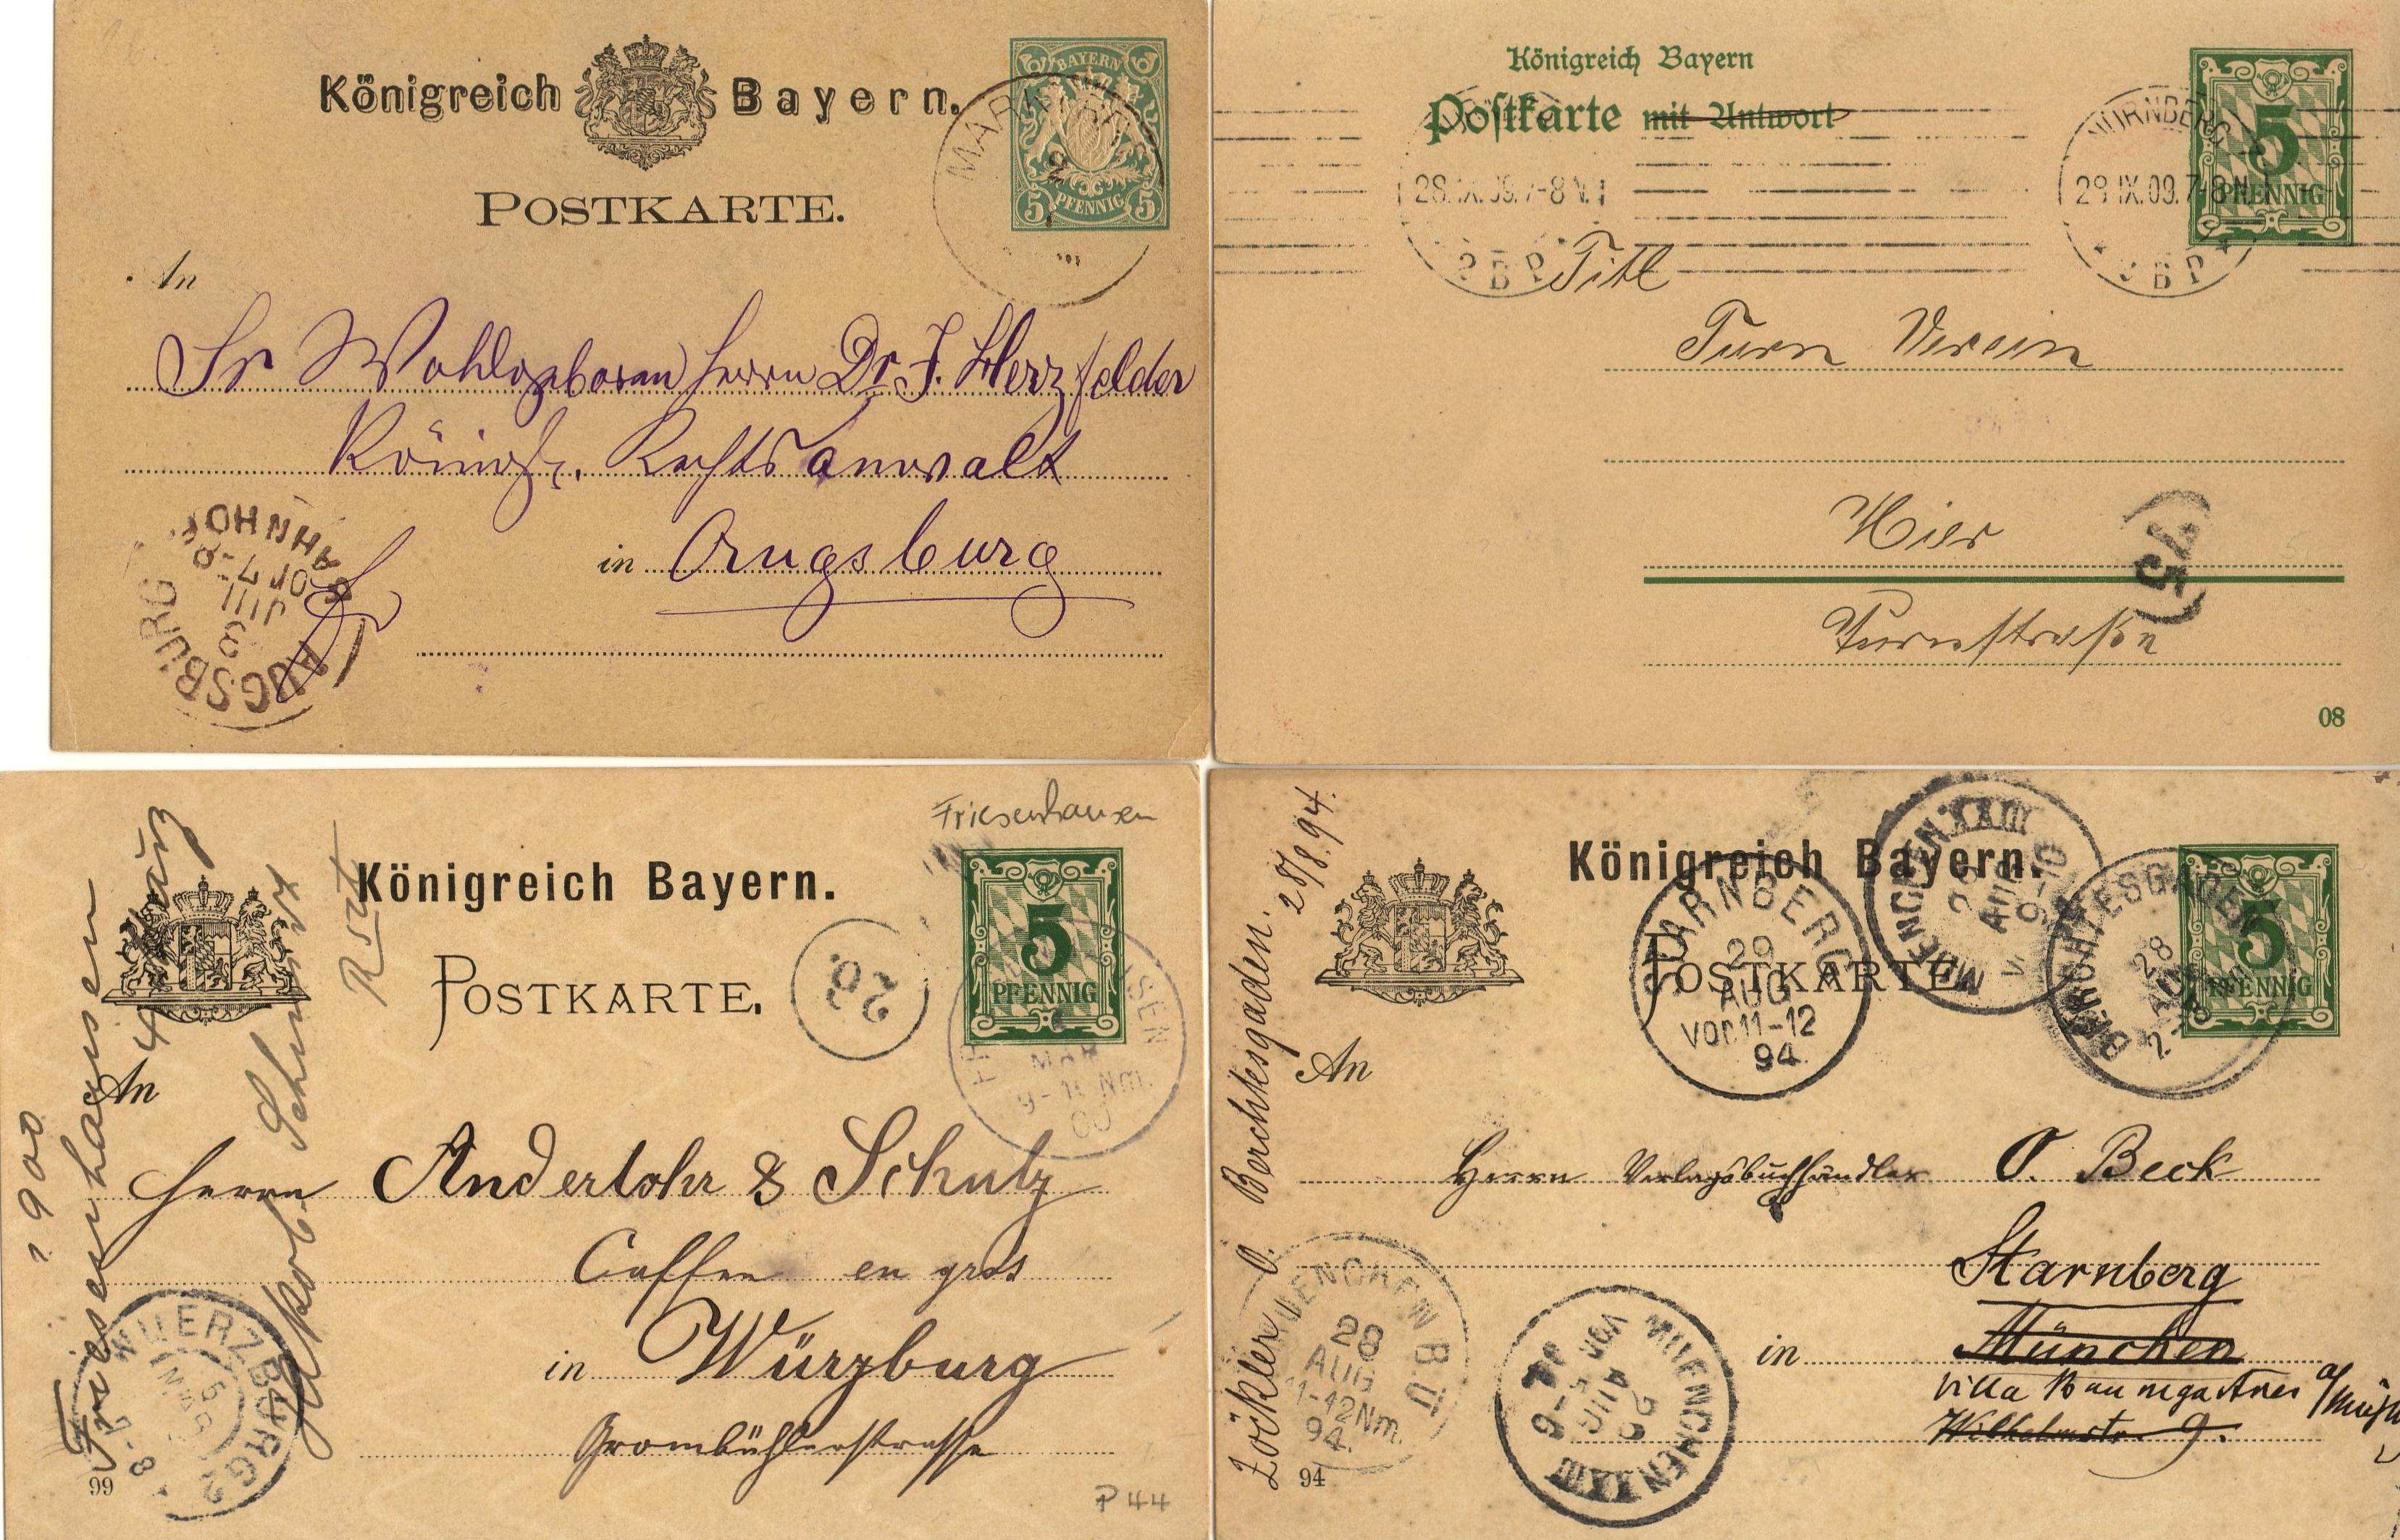 Königreich Bayern.
BAYERN
5 PFENNIG 5
POSTKARTE.
An
Sr Wohlgeboren Herrn Dr. J. Herzfelder
Königl. Rechtsanwalt
in Augsburg
AUGSBURG BAHNHOF
3 JUL
7-8
Königreich Bayern
Postkarte mit Antwort
5
PFENNIG
NÜRNBERG
28.IX.09.7-8 N.
2 B P
NÜRNBERG
29.IX.09.7-8 N.
B P
Titl
Turn Verein
Hier
(75)
Turnstraße
08
Friesenhausen
Königreich Bayern.
5
PFENNIG
POSTKARTE.
20.
MÄR
9-10 Nm.
00
An
Herrn Anderlohr & Schulz
Caffee en gros
in Würzburg
Grombühlerstrasse
1900
Friesenhausen
4 März
Jakob Schmitt
WUERZBURG 2
5
MÄR
7-8
99
P 44
Königreich Bayern.
5
PFENNIG
POSTKARTE.
STARNBERG
29
AUG
Vor 11-12
94.
MUENCHEN XXIII
29
AUG
9-10
BERCHTESGADEN
28
AUG
An
Herrn Verlagsbuchhändler O. Beck
Starnberg
in München
Villa Baumgartner
Wilhelmstr. 9.
Zöckler O. Berchtesgaden. 28/8.94.
MUENCHEN B.Ü
28
AUG
11-12 Nm.
94.
MUENCHEN XXIII
29
AUG
VOR
94
94